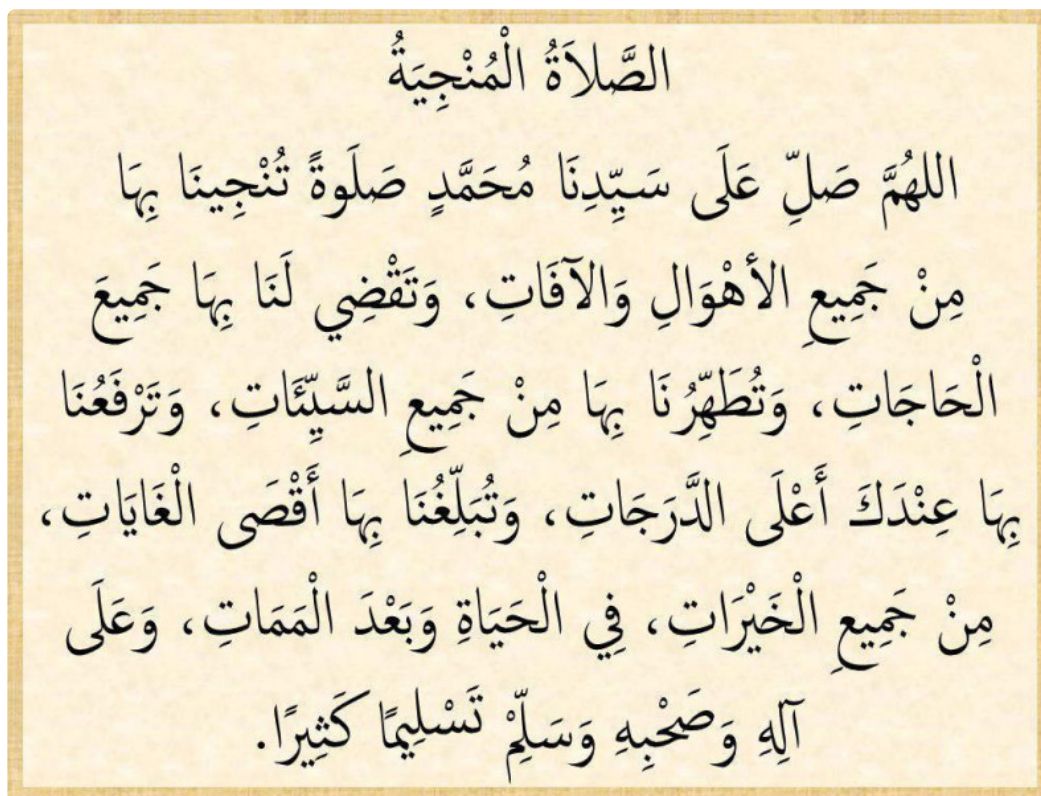 الصَّلاَةُ الْمُنْجِيَةُ
اللهُمَّ صَلِّ عَلَى سَيِّدِنَا مُحَمَّدٍ صَلَوةً تُنْجِينَا بِهَا
مِنْ جَمِيعِ الأهْوَالِ وَالآفَاتِ، وَتَقْضِي لَنَا بِهَا جَمِيعَ
الْحَاجَاتِ، وَتُطَهِّرُنَا بِهَا مِنْ جَمِيعِ السَّيِّئَاتِ، وَتَرْفَعُنَا
بِهَا عِنْدَكَ أَعْلَى الدَّرَجَاتِ، وَتُبَلِّغُنَا بِهَا أَقْصَى الْغَايَاتِ،
مِنْ جَمِيعِ الْخَيْرَاتِ، فِي الْحَيَاةِ وَبَعْدَ الْمَمَاتِ، وَعَلَى
آلِهِ وَصَحْبِهِ وَسَلِّمْ تَسْلِيمًا كَثِيرًا.